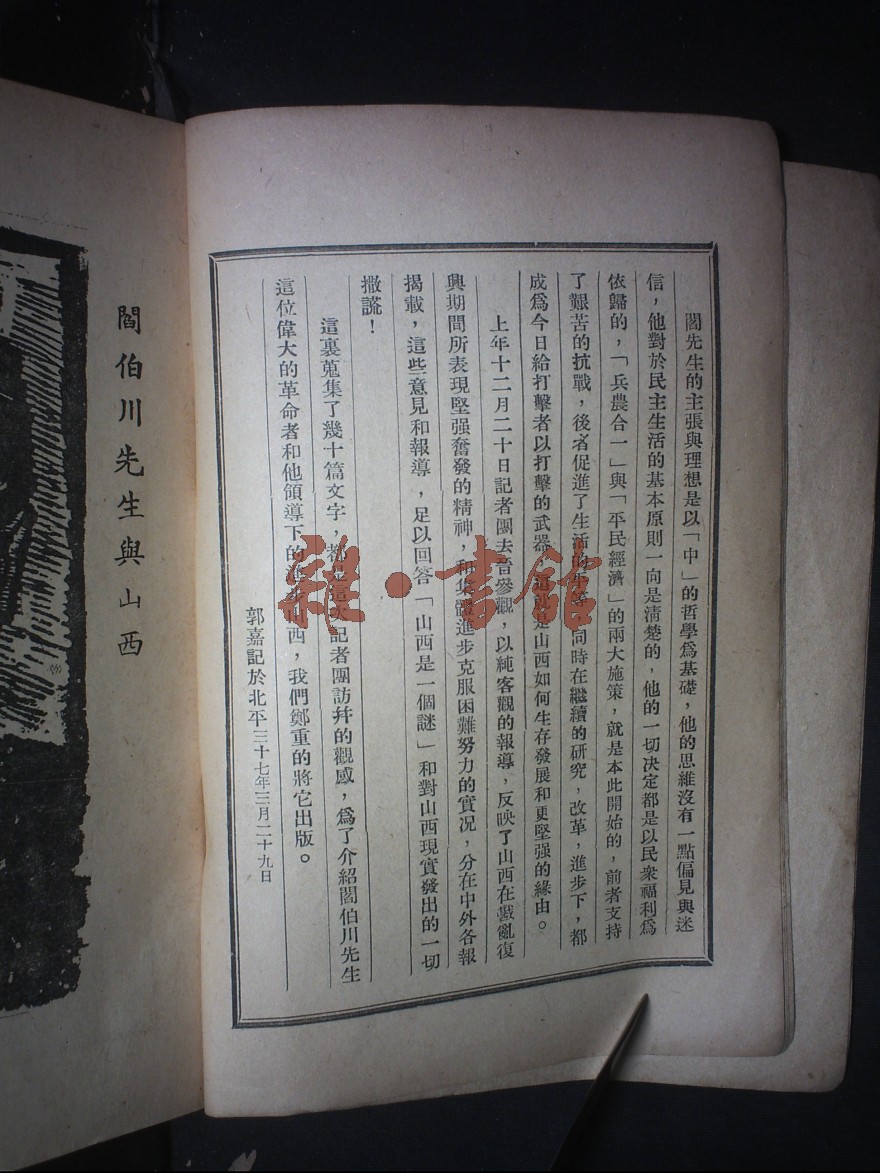 閻先生的主張與理想是以「中」的哲學爲基礎，他的思維沒有一點偏見與迷
信，他對於民主生活的基本原則一向是清楚的，他的一切決定都是以民衆福利爲
依歸的，「兵農合一」與「平民經濟」的兩大施策，就是本此開始的，前者支持
了艱苦的抗戰，後者促進了生活的平等，同時在繼續的研究，改革，進步下，都
成爲今日給打擊者以打擊的武器，這就是山西如何生存發展和更堅强的緣由。
上年十二月二十日記者團去晉參觀，以純客觀的報導，反映了山西在戡亂復
興期間所表現堅强奮發的精神，和集體進步克服困難努力的實況，分在中外各報
揭載，這些意見和報導，足以回答「山西是一個謎」和對山西現實發出的一切
撒謊！
這裏蒐集了幾十篇文字，都是這次記者團訪幷的觀感，爲了介紹閻伯川先生
這位偉大的革命者和他領導下的進步山西，我們鄭重的將它出版。
郭嘉記於北平三十七年三月二十九日
閻伯川先生與山西
雜·書館